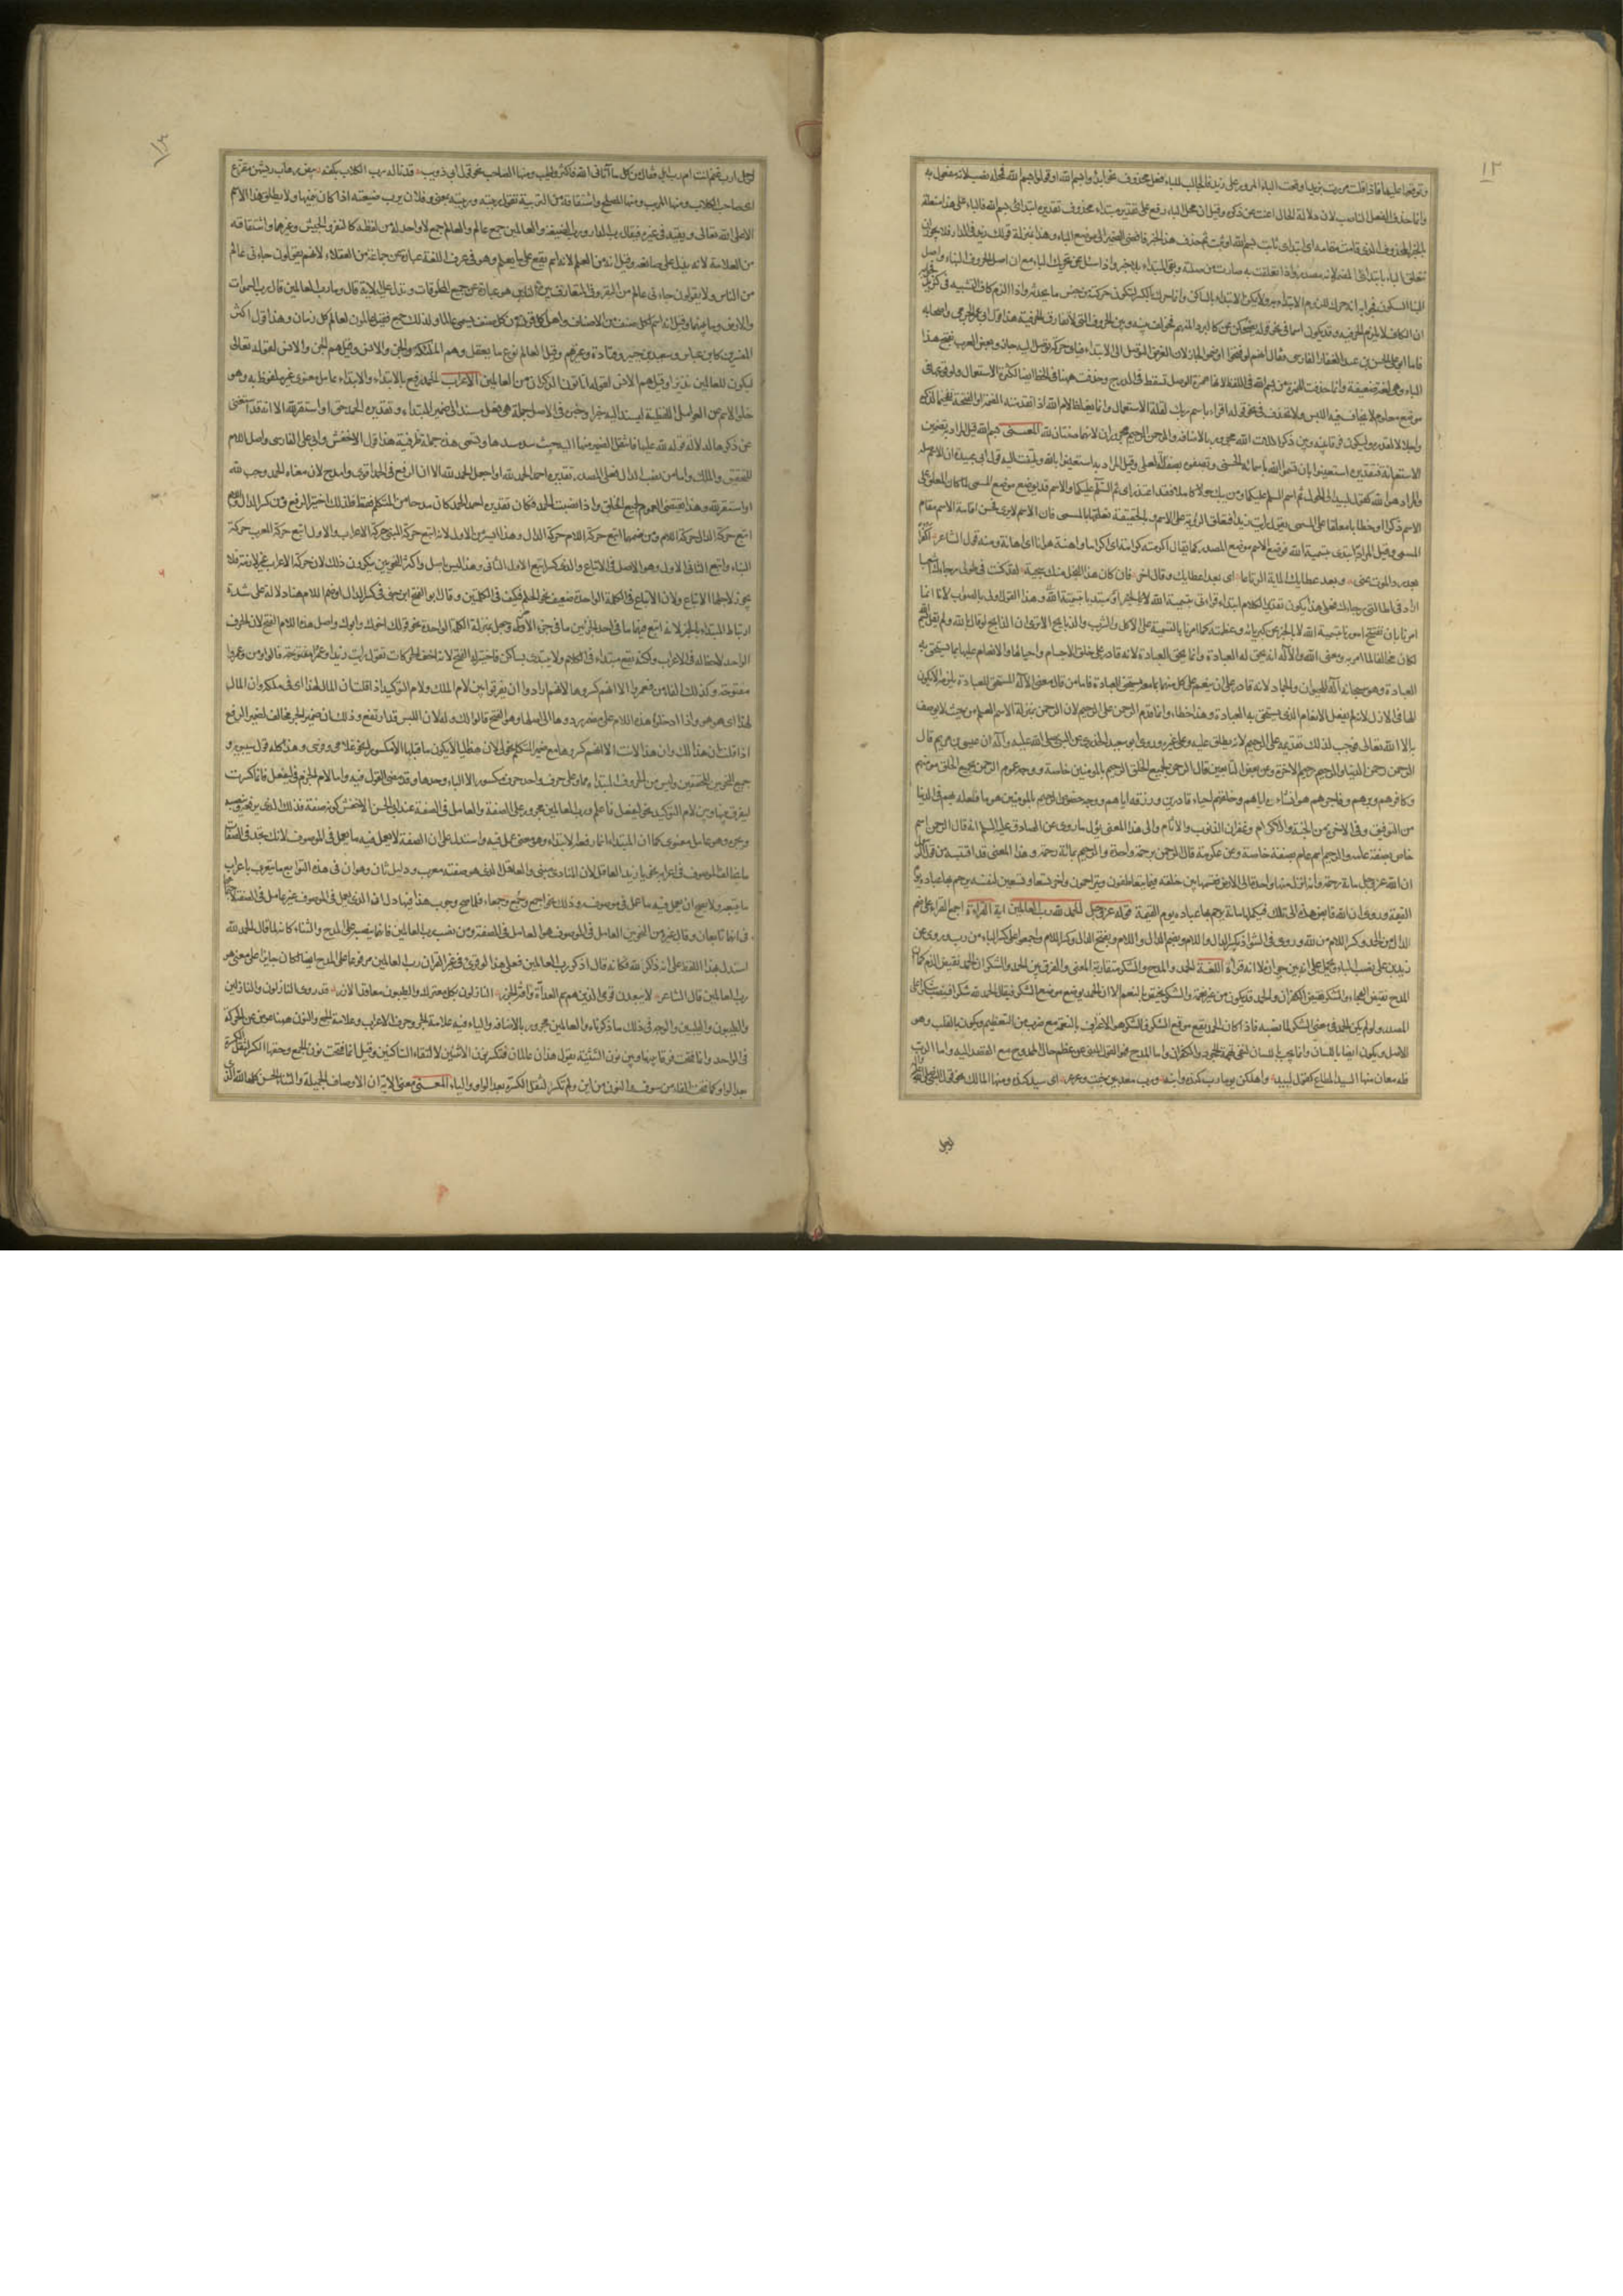 ١٢
وتوقعها عليها فاذا قلت مررت بزيد اوقعت الباء المرور على زيد فالجالب للباء فعل محذوف نحو ابدؤا بسم الله او قولوا بسم الله فمحله نصب لانه مفعول به
وانما حذف الفعل الناصب لان دلالة الحال اغنت عن ذكره وقيل ان محل الباء رفع على تقدير مبتداء محذوف تقديره ابتدائى بسم الله فالباء على هذا متعلقة
بالخبر المحذوف الذى قامت مقامه اى ابتدائى ثابت بسم الله او ثبت ثم حذف هذا الخبر فافضى الضمير الى موضع الباء وهذا بمنزلة قولك زيد فى الدار فلا يجوز ان
يتعلق الباء بابتدائى المضمر لانه مصدر واذا تعلقت به صارت من صلته وبقى المبتداء بلا خبر واذا سئل عن تحريك الباء مع ان اصل الحروف البناء واصل
البناء السكون فجوابه انه حرك للزوم الابتداء به ولا يمكن الابتداء بالساكن وانما حرك بالكسر لتكون حركته من جنس ما يحدثه واذا لزم كاف التشبيه فى كزيد
ان الكاف لا يلزم الحرفية وقد يكون اسما فى نحو قوله يضحكن عن كالبرد المنهم فخولف بينه وبين الحروف التى لا تفارق الحرفية هذا قول ابى عمر الجرمى واصحابه
فاما ابو على الحسن بن عبد الغفار الفارسى فقال انهم لو فتحوا او ضموا لجاز لان الغرض التوصل الى الابتداء فباى حركة توصل اليه جاز وبعض العرب يفتح هذا
الباء وهى لغة ضعيفة وانما حذفت الهمزة من بسم الله فى اللفظ لانها همزة الوصل تسقط فى الدرج وحذفت ههنا فى الخط ايضا لكثرة الاستعمال ولوقوعها فى
موضع معلوم لا يخاف فيه اللبس ولا تحذف فى نحو قوله اقراء باسم ربك لقلة الاستعمال وانما يغلظ لام الله اذا تقدمته الضمة او الفتحة تفخيما لذكره
واجلالا لقدره وليكون فرقا بينه وبين ذكر اللات الله مجرور بالاضافة والرحمن الرحيم مجروران لانهما صفتان لله المعنـى بسم الله قيل المراد به تضمين
الاستعانة فتقديره استعينوا بان تسموا الله باسمائه الحسنى وتصفوه بصفاته العلى وقيل المراد به استعينوا بالله ويلتفت اليه قول ابى عبيدة ان الاسم صلة
والمراد هو الله كقول لبيد الى الحول ثم اسم السلم عليكما ومن يبك حولا كاملا فقد اعتذر اى ثم السلام عليكما والاسم قد يوضع موضع المسمى لما كان المعلق على
الاسم ذكرا او خطابا معلقا على المسمى يقول رايت زيدا فتعلق الرؤية على الاسم وفى الحقيقة تعلقها بالمسمى فان الاسم لا يرى فحسن اقامة الاسم مقام
المسمى وقيل المراد به ابتدى بتسمية الله فوضع الاسم موضع المصدر كما يقال اكرمته كرامة اى اكراما واهنته هوانا اى اهانة ومنه قول الشاعر اكفرا
بعد رد الموت عنى وبعد عطائك المائة الرتاعا اى بعد اعطائك وقال اخر فان كان هذا البخل منك سجية لقد كنت فى طولى رجاءك اشعبا
اراد فى اطالتى رجاءك فعلى هذا يكون تقدير الكلام ابتداء قراءتى بتسمية الله لا بالخبر او مبتد بتسمية الله وهذا القول اولى بالصواب لانا انما
امرنا بان نفتتح امورنا بتسمية الله لا بالخبر عن كبريائه وعظمته كما امرنا بالتسمية على الاكل والشرب والذبايح الا ترى ان الذابح لو قال بالله ولم يقل بسم الله
لكان مخالفا لما امر به ومعنى الله والاله انه يحق له العبادة وانما يحق العبادة لانه قادر على خلق الاجسام واحيائها والانعام عليها بما يستحق به
العبادة وهو سبحانه اله للحيوان والجماد لانه قادر على ان ينعم على كل منهما بما معه يستحق العبادة فاما من قال معنى الاله المستحق للعبادة يلزمه الا يكون
الها فى الازل لانه لم يفعل الانعام الذى يستحق به العبادة وهذا خطاء وانما قدم الرحمن على الرحيم لان الرحمن بمنزلة الاسم العلم من حيث لا يوصف
به الا الله تعالى فوجب لذلك تقديمه على الرحيم لانه يطلق عليه وعلى غيره وروى ابو سعيد الخدرى عن النبى صلى الله عليه وآله ان عيسى بن مريم قال
الرحمن رحمن الدنيا والرحيم رحيم الاخرة وعن بعض التابعين قال الرحمن بجميع الخلق الرحيم بالمومنين خاصة ووجه عموم الرحمن بجميع الخلق مومنهم
وكافرهم وبرهم وفاجرهم هو انشاءه اياهم وخلقهم احياء قادرين ورزقه اياهم ووجه خصوص الرحيم بالمومنين هو ما فعله بهم فى الدنيا
من التوفيق وفى الاخرة من الجنة والاكرام وغفران الذنوب والاثام والى هذا المعنى يؤل ما روى عن الصادق عليه السلم انه قال الرحمن اسم
خاص بصفة عامة والرحيم اسم عام بصفة خاصة وعن عكرمة قال الرحمن برحمة واحدة والرحيم بمائة رحمة وهذا المعنى قد اقتبسه من قول الرسول
ان الله عز وجل مائة رحمة وانه انزل منها واحدة الى الارض فقسمها بين خلقه فبها يتعاطفون ويتراحمون واخر تسعا وتسعين لنفسه يرحم بها عباده يوم
القيمة وروى ان الله قابض هذه الى تلك فيكملها مائة يرحم بها عباده يوم القيمة قوله عز وجل الحمد لله رب العالمين اية القراءة اجمع القراء على ضم
الدال من الحمد وكسر اللام من لله وروى فى الشواذ بكسر الدال واللام وبضم الدال واللام وبفتح الدال وكسر اللام واجمعوا على كسر الباء من رب وروى عن
زيد بن على نصب الباء ويحمل على انه بين جوازه لا انه قراءة اللغة الحمد والمدح والشكر متقاربة المعنى والفرق بين الحمد والشكر ان الحمد نقيض الذم كما ان
المدح نقيض الهجاء والشكر نقيض الكفران والحمد قد يكون من غير نعمة والشكر يختص بالنعم الا ان الحمد يوضع موضع الشكر فيقال الحمد لله شكرا فينصب شكرا على
المصدر ولو لم يكن الحمد فى معنى الشكر لما نصبه فاذا كان الحمد يقع موقع الشكر فالشكر هو الاعتراف بالنعمة مع ضرب من التعظيم ويكون بالقلب وهو
الاصل ويكون ايضا باللسان وانما يجب باللسان لنفى تهمة الجحود والكفران واما المدح فهو القول المنبى عن عظم حال الممدوح مع القصد اليه واما الرب
فله معان منها السيد المطاع كقول لبيد واهلكن يوما رب كندة وابنه ورب معد بين خبت وعرعر اى سيد كندة ومنها المالك
لرجل
١٣
لرجل ارب غنم انت ام رب ابل فقال من كل ما آتانى الله فاكثر واطيب ومنها الصاحب نحو قول ابى ذويب قد ناله رب الكلاب بكفه بيض رهاب ريشهن مقزع
اى صاحب الكلاب ومنها المربب ومنها المصلح واشتقاقه من التربية تقول ربيته ورببته بمعنى وفلان يرب ضيعته اذا كان يتمها ولا يطلق هذا الاسم
الا على الله تعالى ويقيد فى غيره فيقال رب الدار ورب الضيعة والعالمين جمع عالم والعالم جمع لا واحد له من لفظه كالنفر والجيش وغيرهما واشتقاقه
من العلامة لانه يدل على صانعه وقيل انه من العلم لانه اسم يقع على ما يعلم وهو فى عرف اللغة عبارة عن جماعة من العقلاء لانهم يقولون جاءنى عالم
من الناس ولا يقولون جاءنى عالم من البقر وفى المتعارف بين الناس هو عبارة عن جميع المخلوقات وتدل عليه الاية قال وما رب العالمين قال رب السموات
والارض وما بينهما وقيل انه اسم لكل صنف من الاصناف واهل كل قرن من كل صنف يسمى عالما ولذلك جمع فقيل عالمون لعالم كل زمان وهذا قول اكثر
المفسرين كابن عباس وسعيد بن جبير وقتادة وغيرهم وقيل العالم نوع ما يعقل وهم الملائكة والجن والانس وقيل هم الجن والانس لقوله تعالى
ليكون للعالمين نذيرا وقيل هم الانس لقوله اتاتون الذكران من العالمين الاعراب الحمد رفع بالابتداء والابتداء عامل معنوى غير ملفوظ به وهو
خلو الاسم من العوامل اللفظية ليسند اليه خبر وخبره فى الاصل جملة هى فعل مسند الى ضمير المبتداء وتقديره الحمد حق او استقر لله الا انه قد استغنى
عن ذكرها لدلالة قوله لله عليها فانتقل الضمير منها اليه حيث سد مسدها وتسمى هذه جملة ظرفية هذا قول الاخفش وابى على الفارسى واصل اللام
للتحقيق والملك واما من نصب الدال فعلى المصدر تقديره احمد الحمد لله او اجعل الحمد لله الا ان الرفع فى الحمد اقوى وامدح لان معناه الحمد وجب لله
او استقر لله وهذا يقتضى العموم لجميع الخلق واذا نصبت الحمد فكان تقديره احمد الحمد كان مدحا من المتكلم فقط فلذلك اختير الرفع ومن كسر الدال واللام
اتبع حركة الدال حركة اللام ومن ضمهما اتبع حركة اللام حركة الدال وهذا ايسر من الاول لانه اتبع حركة المبنى حركة الاعراب والاول اتبع حركة المعرب حركة
البناء واتبع الثانى الاول وهو الاصل فى الاتباع والذى كسر اتبع الاول الثانى وهذا ليس باصل واكثر النحويين ينكرون ذلك لان حركة الاعراب غير لازمة فلا
يجوز لاجلها الاتباع ولان الاتباع فى الكلمة الواحدة ضعيف نحو الحلم فكيف فى الكلمتين وقال ابو الفتح ابن جنى فى كسر الدال او ضم اللام هنا دلالة على شدة
ارتباط المبتداء بالخبر لانه اتبع فيهما ما فى احد الجزئين ما فى الجزء الاخر وجعل بمنزلة الكلمة الواحدة نحو قولك اخوك وابوك واصل هذه اللام الفتح لان الحرف
الواحد لا حظ له فى الاعراب ولكنه يقع مبتداء فى الكلام ولا يبتدى بساكن فاختير له الفتح لانه اخف الحركات تقول رايت زيدا وعمرا مفتوحة قالوا ومن وعمرو
مفتوحة وكذلك الفاء من فعمروا الا انهم كسروها لانهم ارادوا ان يفرقوا بين لام الملك ولام التوكيد اذا قلت ان المال لهذا اى فى ملكه وان المال
لهذا اى هو هو واذا ادخلوا هذه اللام على مضمر ردوها الى اصلها وهو الفتح قالوا لك وله لان اللبس قد ارتفع وذلك ان ضمير الجر مخالف لضمير الرفع
اذا قلت ان هذا لك وان هذا لانت الا انهم كسروها مع ضمير المتكلم نحو لى لان هذه الياء لا يكون ما قبلها الا مكسورا نحو غلامى وفرسى وهذا كله قول سيبويه و
جميع النحويين المحققين وليس من الحروف المبتداء بها مما هو على حرف واحد حرف مكسور الا الباء وحدها وقد مضى القول فيه واما لام الجزم فى ليفعل فانما كسرت
ليفرق بينها وبين لام التوكيد نحو ليفعل فاعلم ورب العالمين مجرور على الصفة والعامل فى الصفة عند ابى الحسن الاخفش كونه صفة فذلك الذى يرفعه وينصبه
ويجره وهو عامل معنوى كما ان المبتداء انما رفعه الابتداء وهو معنى عمل فيه واستدل على ان الصفة لا يعمل فيه ما يعمل فى الموصوف لانك تجد فى الصفات
ما يخالف الموصوف فى اعرابه نحو يا زيد العاقل لان المنادى مبنى والعاقل الذى هو صفته معرب ودليل ثان وهو ان فى هذه التوابع ما يعرب باعراب
ما يتبعه ولا يصح ان يعمل فيه ما عمل فى موصوفه وذلك نحو اجمع وجمع وجمعاء فلما صح وجوب هذا فيها دل ان الذى يعمل فى الموصوف غير عامل فى الصفة لاجتماعهما
فى انهما تابعان وقال غيره من النحويين العامل فى الموصوف هو العامل فى الصفة ومن نصب رب العالمين فانما ينصبه على المدح والثناء كانه لما قال الحمد لله
استدل بهذا اللفظ على انه ذاكر لله فكانه قال اذكر رب العالمين فعلى هذا لو قرى فى غير القرآن رب العالمين مرفوعا على المدح ايضا لكان جايزا على معنى هو
رب العالمين قال الشاعر لا يبعدن قومى الذين هم سم العداة وآفة الجزر النازلون بكل معترك والطيبون معاقد الازر قد روى النازلون والنازلين
والطيبون والطيبين والوجه فى ذلك ما ذكرناه والعالمين مجرور بالاضافة والياء فيه علامة الجر وحرف الاعراب وعلامة الجمع والنون ههنا عوض عن الحركة
فى الواحد وانما فتحت فرقا بينها وبين نون التثنية تقول هذان عالمان فتكسر نون الاثنين لالتقاء الساكنين وقيل انما فتحت نون الجمع وحقها الكسر لثقل الكسرة
بعد الواو كما فتحت الفاء من سوف والنون من اين ولم تكسر لثقل الكسرة بعد الواو والياء المعنـى معنى الاية ان الاوصاف الجميلة والثناء الحسن كلها لله الذى